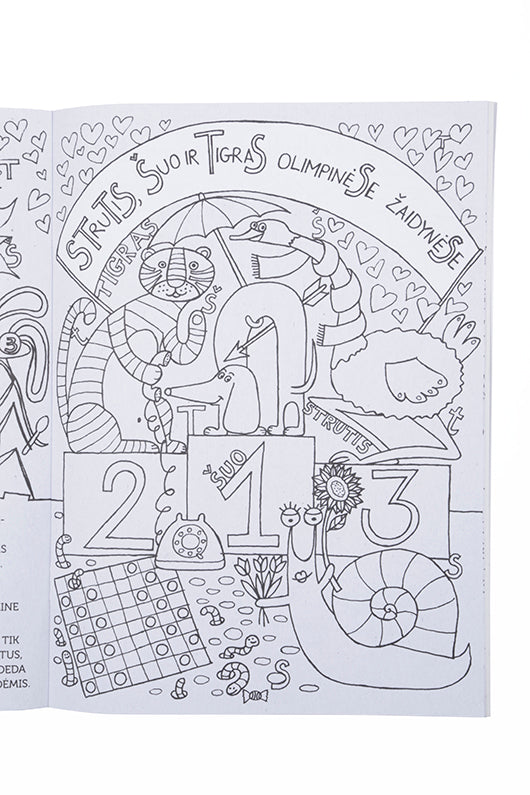 STRUTIS, ŠUO IR TIGRAS OLIMPINĖSE ŽAIDYNĖSE
TIGRAS
ŠUO
STRUTIS
2
1
3
3
T
S
AS
INE
TIK
TUS,
DEDA
DĖMIS.
t
T
t
S
S